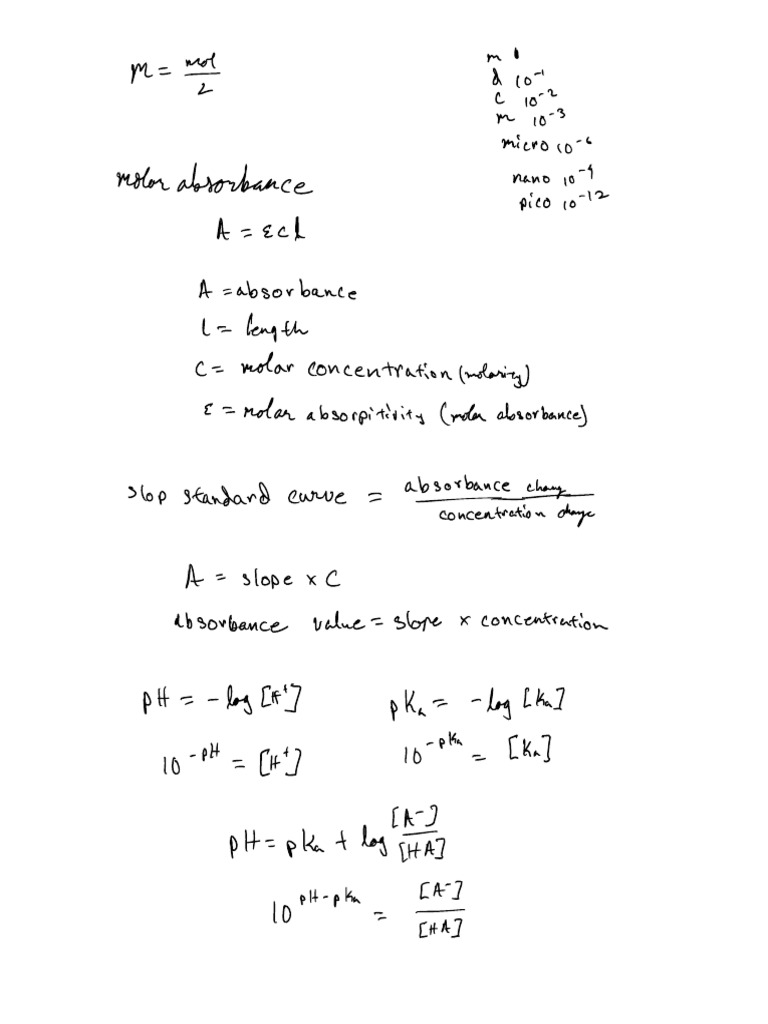 M = mol/2
m 1
d 10⁻¹
c 10⁻²
m 10⁻³
micro 10⁻⁶
nano 10⁻⁹
pico 10⁻¹²
molar absorbance
A = εcl
A = absorbance
l = length
C = molar concentration (molarity)
ε = molar absorpitivity (molar absorbance)
slop standard curve = absorbance change / concentration change
A = slope x C
absorbance value = slope x concentration
pH = -log [H⁺]
pKa = -log [Ka]
10^-pH = [H⁺]
10^-pKa = [Ka]
pH = pKa + log [A⁻]/[HA]
10^pH-pKa = [A⁻]/[HA]